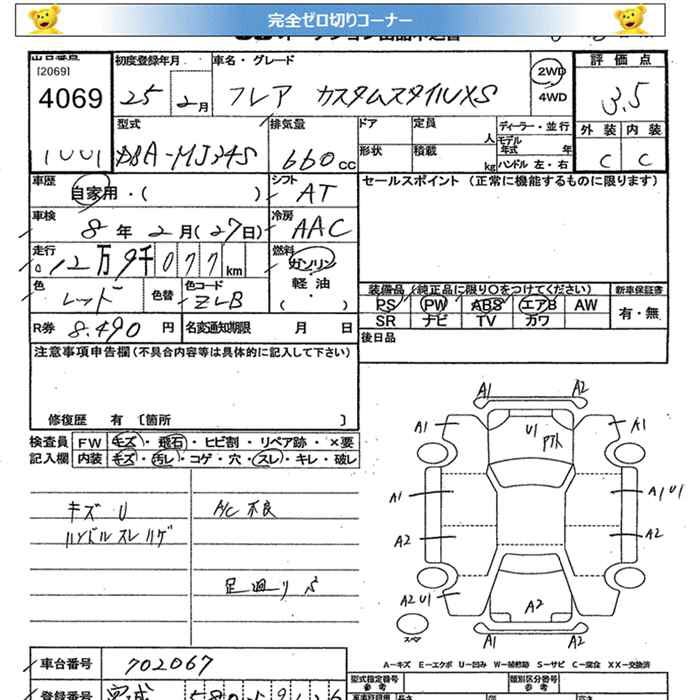 完全ゼロ切りコーナー
[2069]
4069
初度登録年月
25 2月
車名・グレード
フレア カスタムスタイルXS
2WD
4WD
評価点
3.5
外装 内装
C C
型式
DBA-MJ34S
排気量
660cc
ドア
定員
人
形状
積載
kg
ディーラー・並行
モデル年式 年
ハンドル 左・右
車歴
自家用・( )
シフト
AT
セールスポイント (正常に機能するものに限ります)
車検
8年 2月(27日)
冷房
AAC
走行
12万9千077km
燃料
ガソリン
軽油
( )
色
レッド
色替
色コード
ZLB
装備品 (純正品に限り○をつけてください)
新車保証書
PS PW ABS エアB AW
有・無
SR ナビ TV カワ
R券 8,490円
名変通知期限 月 日
後日品
注意事項申告欄(不具合内容等は具体的に記入して下さい)
修復歴 有 〔箇所 〕
検査員
記入欄
FW キズ・飛石・ヒビ割・リペア跡・×要
内装 キズ・汚レ・コゲ・穴・スレ・キレ・破レ
キズ U
ハンドルスレハゲ
A/C 不良
足廻りS
A1 A2
A1 U1 A1
A1 A1U1
A2 A2
A2U1 A2
A1 A2
スペア
A-キズ E-エクボ U-凹み W-補修跡 S-サビ C-腐食 XX-交換済
車台番号
702067
型式指定番号
参考
類別区分番号
参考
登録番号